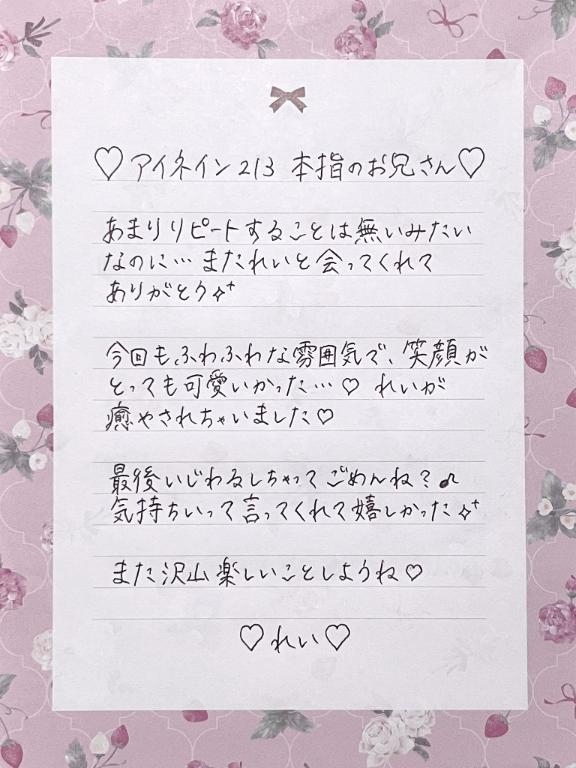 ♡アイネイン213 本指のお兄さん♡
あまりリピートすることは無いみたい
なのに… またれいと会ってくれて
ありがとう✧⁺
今回もふわふわな雰囲気で、笑顔が
とっても可愛いかった…♡ れいが
癒やされちゃいました♡
最後いじわるしちゃってごめんね？♪
気持ちいって言ってくれて嬉しかった✧⁺
また沢山楽しいことしようね♡
♡れい♡